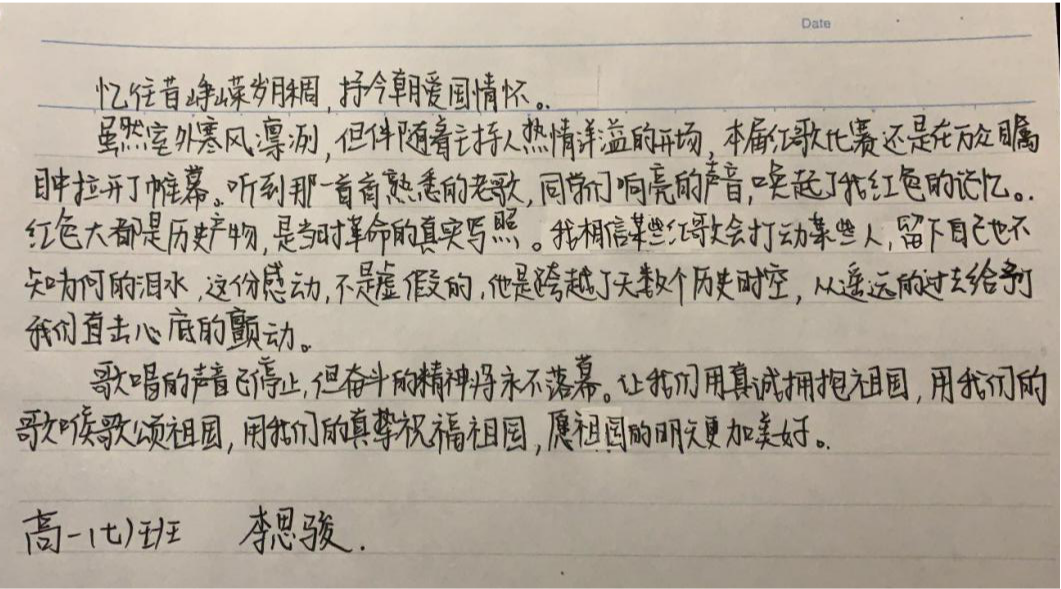 Date
忆往昔峥嵘岁月稠，抒今朝爱国情怀。
虽然室外寒风凛冽，但伴随着主持人热情洋溢的开场，本届红歌比赛还是在万众瞩
目中拉开了帷幕。听到那一首首熟悉的老歌，同学们响亮的声音，唤起了我红色的记忆。
红色大都是历史产物，是当时革命的真实写照。我相信某些红歌会打动某些人，留下自己也不
知为何的泪水，这份感动，不是虚假的，他是跨越了无数个历史时空，从遥远的过去给予
我们直击心底的颤动。
歌唱的声音已停止，但奋斗的精神将永不落幕。让我们用真诚拥抱祖国，用我们的
歌喉歌颂祖国，用我们的真挚祝福祖国，愿祖国的明天更加美好。
高一(七)班 李思骏.